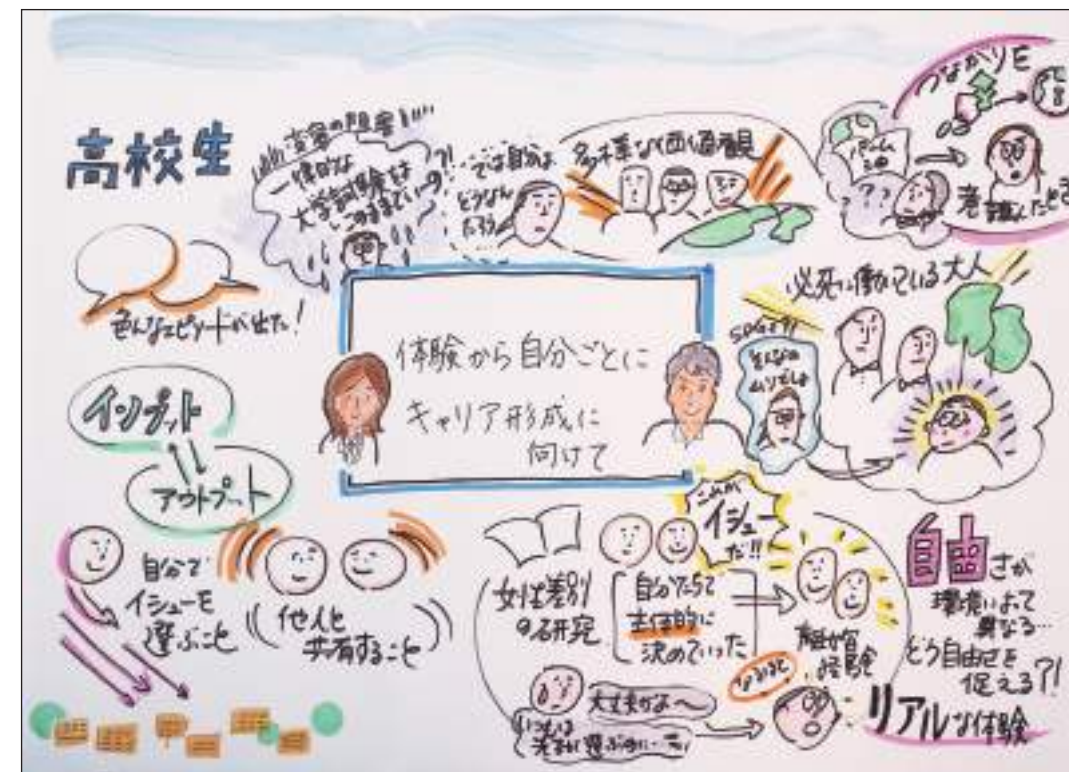 高校生
一律的な
大学試験は
このままでいいの?!
では自分は
どうなん
だろう
多様な価値観
つながりを
意識したとき
色んなエピソードが出た!
体験から自分ごとに
キャリア形成に
向けて
必死に働いている大人
SDGs?!
そんなの
ムリでしょ
インプット
アウトプット
自分で
イシューを
選ぶこと
他人と
共有すること
これが
イシュー
だ!!
女性差別
の研究
自分たちで
主体的に
決めていった
離婚
経験
なるほど
大丈夫かな〜
いつもは
先生が選ぶのに…
自由さが
環境によって
異なる…
どう自由さを
捉える?!
リアルな体験